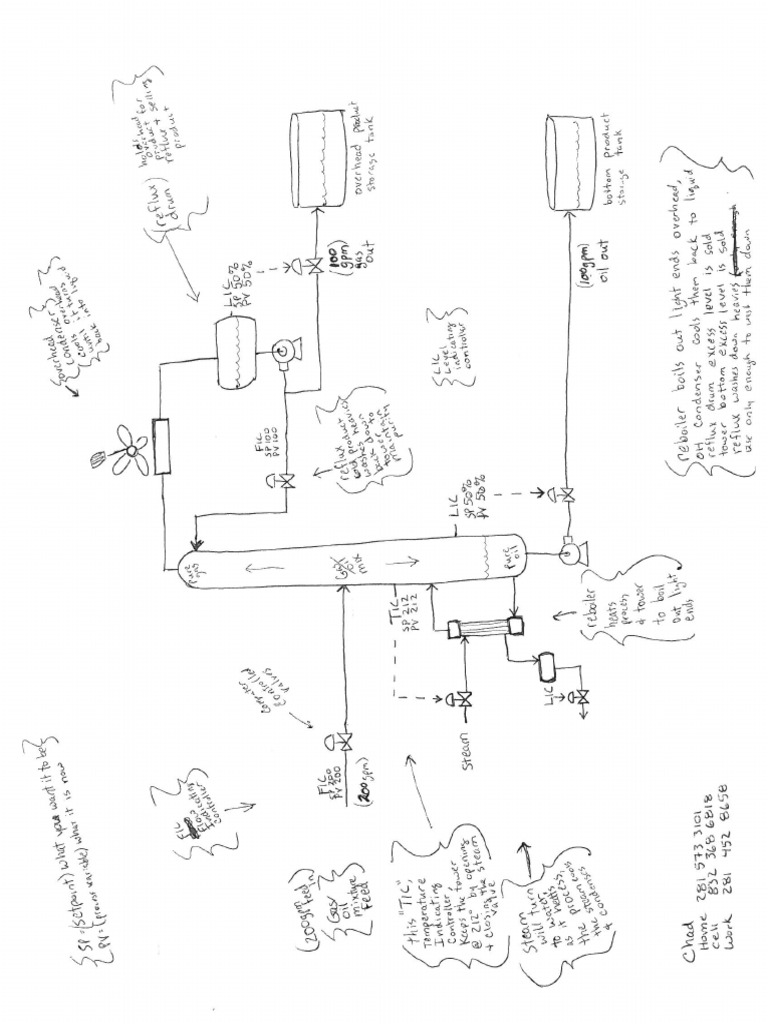 SP = (Setpoint) what you want it to be
PV = (process variable) what it is now
FIC
Flow
Indicating
Controller
Computer
Controlled
valves
(200gpm feed in)
Gas/
oil
mixture
Feed
FIC
SP 200
PV 200
(200gpm)
overhead
condenser
Condenses overhead
cools it +
until
into
(reflux
drum)
holds
overhead for
product +
reflux + selling
product
LIC
SP 50%
PV 50%
FIC
SP 100
PV 100
(100
gpm)
gas
out
overhead product
storage tank
reflux
back down
to
maintain
purity
LIC
Level
indicating
controller
Pure
gas
Gas/
Oil
mix
Pure
oil
TIC
SP 212
PV 212
LIC
SP 50%
PV 50%
(100gpm)
oil out
bottom product
storage
tank
Steam
LIC
reboiler
heats
process
& tower
to boil
out light
ends
this "TIC",
Temperature
Indicating
Controller,
Keeps the tower
@ 212° by opening
+ closing the steam
valve
Steam
will turn
to water
as it heats
process,
as the process cools
the steam
& condenses
reboiler boils out light ends overhead,
OH Condenser cools them back to liquid
reflux drum excess level is sold
tower bottom excess level is sold
reflux washes down heavies
use only enough to wash them down
Chad
Home 281 573 3101
cell 832 368 6818
work 281 452 8658